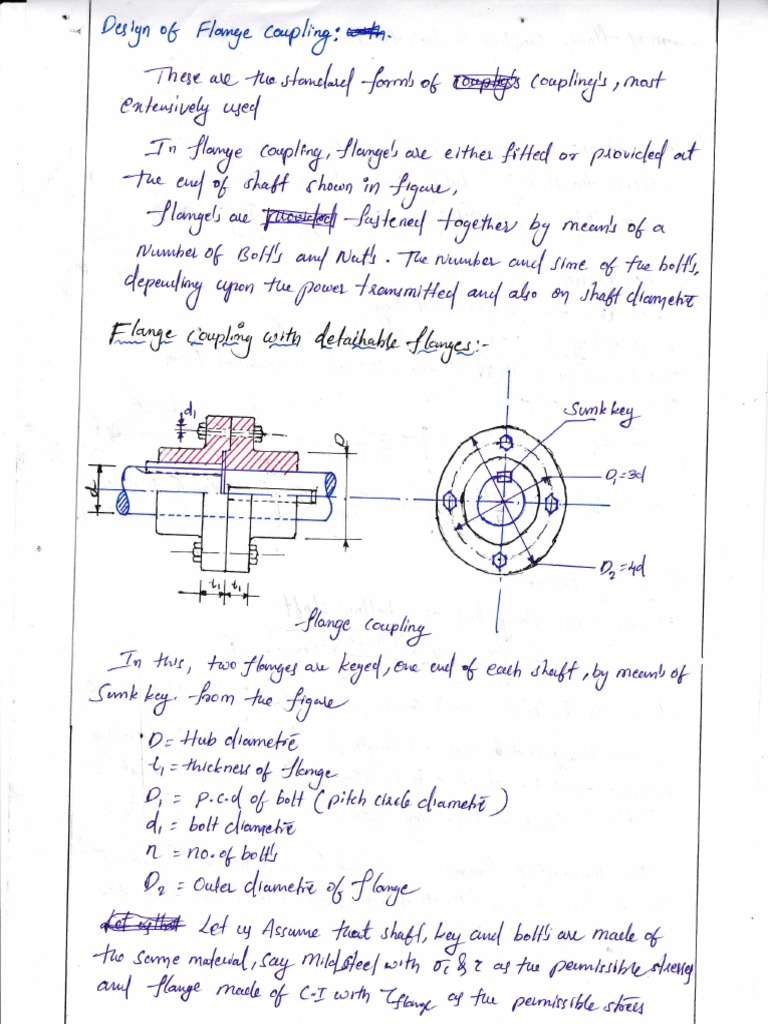 Design of Flange coupling:
These are the standard form's of coupling's, most
extensively used
In flange coupling, flange's are either fitted or provided at
the end of shaft shown in figure,
flange's are provided fastened together by mean's of a
Number of Bolt's and Nut's. The Number and sime of the bolt's,
depending upon the power transmitted and also on shaft diametre
Flange coupling with detachable flanges:-
d1
D
d
t1
t1
Sunk key
D1=3d
D2=4d
flange coupling
In this, two flanges are keyed, one end of each shaft, by mean's of
Sunk key. from the figure
D = Hub diametre
t1 = thickness of flange
D1 = p.c.d of bolt (pitch circle diametre)
d1 = bolt diametre
n = no. of bolt's
D2 = Outer diametre of flange
Let us that Let us Assume that shaft, key and bolt's are made of
the same material, say Mild steel with σc & τ as the permissible stresses
and flange made of C-I with τflange as the permissible stress